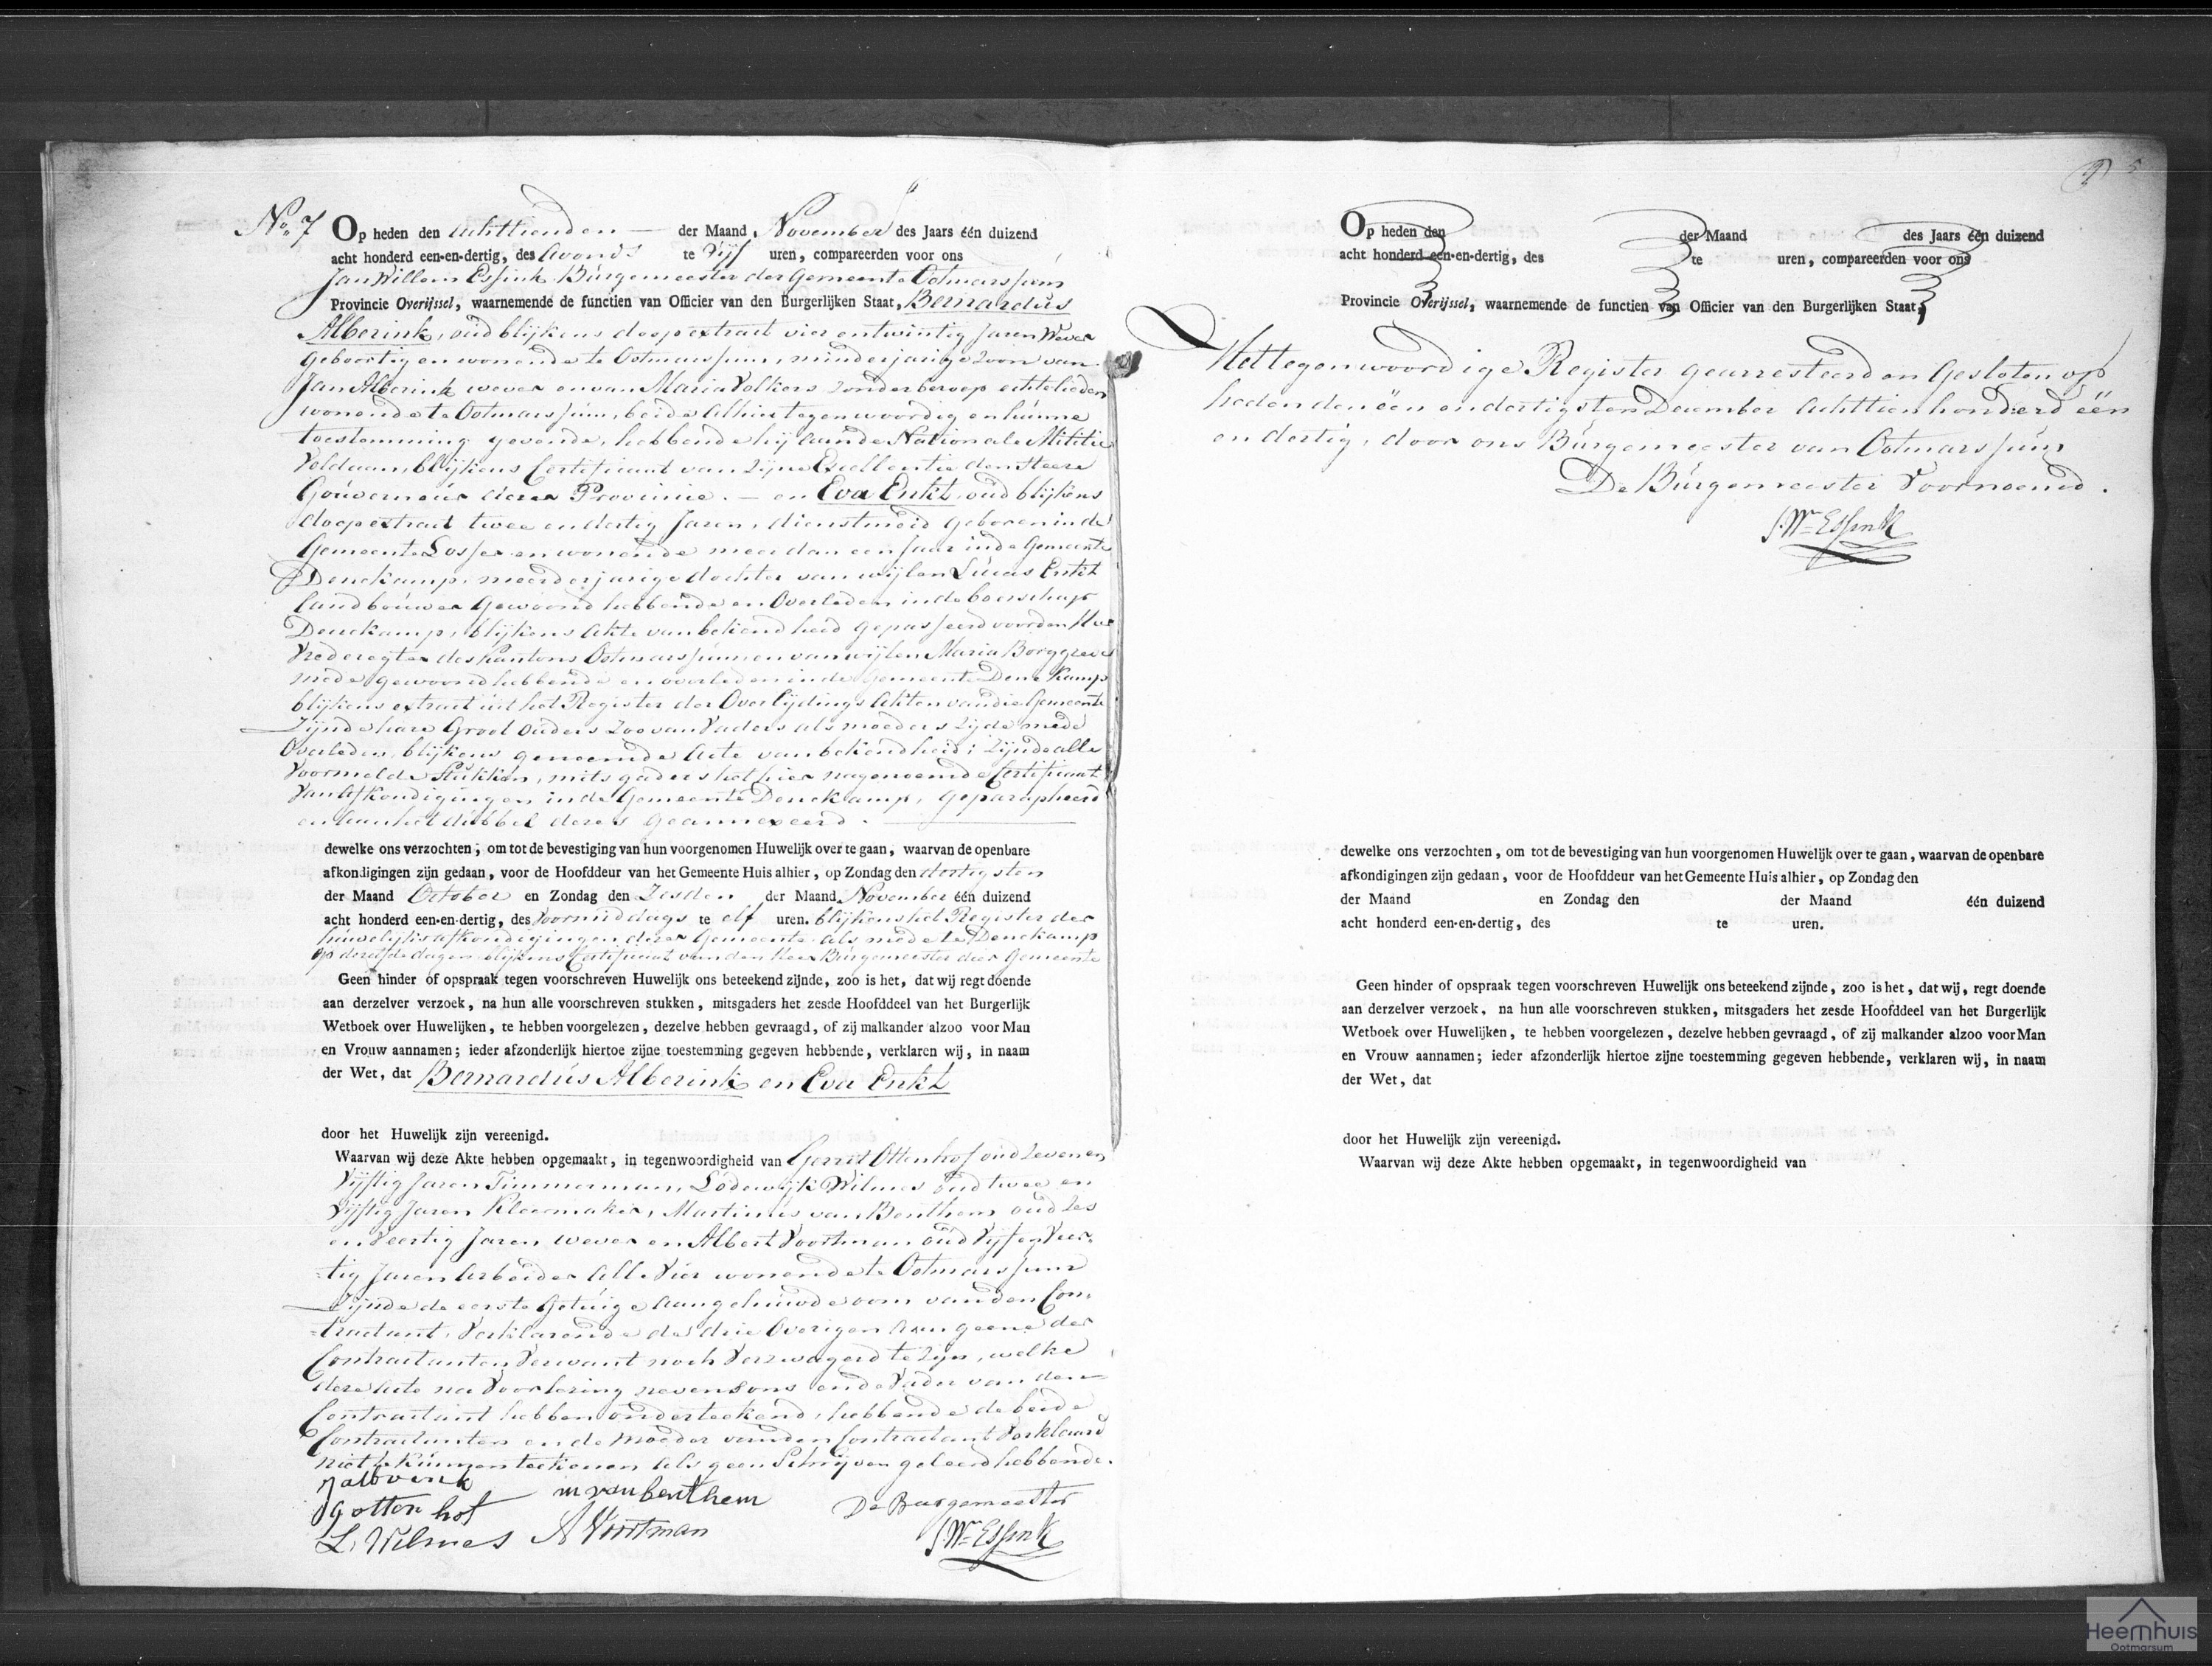 No. 7 Op heden den Achttienden — der Maand, November des Jaars één duizend
acht honderd een-en-dertig, des Avonds te Vijf uren, compareerden voor ons
Jan Willem Essink Burgemeester der Gemeente Ootmarssum
Provincie Overijssel, waarnemende de functien van Officier van den Burgerlijken Staat, Bernardus
Alberink, oud blijkens doop extract vier en twintig Jaren Wever
Geboortig en wonende te Ootmarssum, minderjarige zoon van
Jan Alberink wever en van Maria Volkers zonder beroep echtelieden
wonende te Ootmarssum, beide alhier tegenwoordig en hunne
toestemming gevende, hebbende hij aan de Nationale Militie
Voldaan, blijkens Certificaat van zijne Excellentie den Heere
Gouverneur dezer Provincie. — en Eva Enkt, oud blijkens
doop extract twee en dertig Jaren, dienstmeid geboren in de
Gemeente Losser en wonende meer dan een Jaar in de Gemeente
Denekamp, meerderjarige dochter van wijlen Lucas Enkt
landbouwer Gewoond hebbende en Overleden in de boerschap
Denekamp, blijkens Akte van bekendheid gepasseerd voor den Heer
Vrederegter des Kantons Ootmarssum en van wijlen Maria Borggreve
mede gewoond hebbende en overleden in de Gemeente Denekamp
blijkens extract uit het Register der Overlijdings Akten van die Gemeente
Zijnde hare Groot Ouders Zoo van Vaders als moeders zijde mede
Overleden, blijkens genoemde Acte van bekendheid; Zijnde alle
Voormelde Stukken, mitsgaders het hier nagenoemde Certificaat
Van Afkondigingen in de Gemeente Denekamp, geparapheerd
en aan het dubbel dezes Geannexeerd. —
dewelke ons verzochten, om tot de bevestiging van hun voorgenomen Huwelijk over te gaan, waarvan de openbare
afkondigingen zijn gedaan, voor de Hoofddeur van het Gemeente Huis alhier, op Zondag den dertigsten
der Maand October en Zondag den Zesden der Maand November één duizend
acht honderd een-en-dertig, des Voormiddags te elf uren. blijkens het Register der
huwelijks afkondigingen dezer Gemeente als mede te Denekamp
op dezelfde dagen blijkens Certificaat van den Heer Burgemeester dier Gemeente
Geen hinder of opspraak tegen voorschreven Huwelijk ons beteekend zijnde, zoo is het, dat wij regt doende
aan derzelver verzoek, na hun alle voorschreven stukken, mitsgaders het zesde Hoofddeel van het Burgerlijk
Wetboek over Huwelijken, te hebben voorgelezen, dezelve hebben gevraagd, of zij malkander alzoo voor Man
en Vrouw aannamen; ieder afzonderlijk hiertoe zijne toestemming gegeven hebbende, verklaren wij, in naam
der Wet, dat Bernardus Alberink en Eva Enkt
door het Huwelijk zijn vereenigd.
Waarvan wij deze Akte hebben opgemaakt, in tegenwoordigheid van Gerrit Ottenhof oud Zeven en
Vijftig Jaren Timmerman, Lodewijk Wilmes oud twee en
Vijftig Jaren Kleermaker, Martinus van Benthem oud Zes
en Veertig Jaren wever en Albert Voortman oud Vijf en Veer-
tig Jaren Arbeider Alle Vier wonende te Ootmarssum
Zijnde de eerste Getuige Aangehuwde oom van den Con-
tractant, Verklarende de drie Overigen Aan geene der
Contractanten Verwant noch Verzwagerd te zijn, welke
deze Acte na Voorlezing nevens ons en de Vader van den
Contractant hebben onderteekend, hebbende de beide
Contractanten en de Moeder van den Contractant Verklaard
niet te kunnen teekenen als geen Schrijven geleerd hebbende.
J alberink
G otten hof
m van benthem
De Burgemeester
L. Wilmes
A Voortman
J.Wm Essink
Op heden den der Maand des Jaars één duizend
acht honderd een-en-dertig, des te uren, compareerden voor ons
Provincie Overijssel, waarnemende de functien van Officier van den Burgerlijken Staat,
Het tegenwoordige Register gearresteerd en Gesloten op
heden den één en dertigsten December Achttien honderd één
en dertig, door ons Burgemeester van Ootmarssum
De Burgemeester Voornoemd.
J.Wm Essink
dewelke ons verzochten, om tot de bevestiging van hun voorgenomen Huwelijk over te gaan, waarvan de openbare
afkondigingen zijn gedaan, voor de Hoofddeur van het Gemeente Huis alhier, op Zondag den
der Maand en Zondag den der Maand één duizend
acht honderd een-en-dertig, des te uren.
Geen hinder of opspraak tegen voorschreven Huwelijk ons beteekend zijnde, zoo is het, dat wij, regt doende
aan derzelver verzoek, na hun alle voorschreven stukken, mitsgaders het zesde Hoofddeel van het Burgerlijk
Wetboek over Huwelijken, te hebben voorgelezen, dezelve hebben gevraagd, of zij malkander alzoo voor Man
en Vrouw aannamen; ieder afzonderlijk hiertoe zijne toestemming gegeven hebbende, verklaren wij, in naam
der Wet, dat
door het Huwelijk zijn vereenigd.
Waarvan wij deze Akte hebben opgemaakt, in tegenwoordigheid van
Heemhuis
Ootmarsum